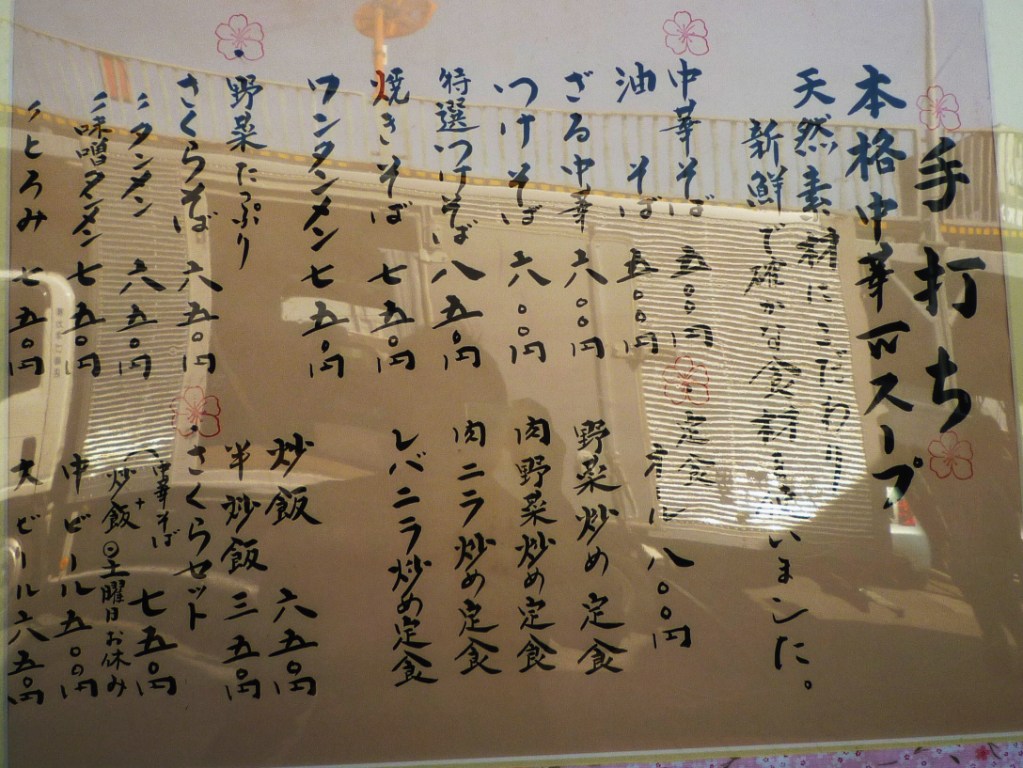 手打ち
本格中華スープ
天然素材にこだわり
新鮮で確かな食材を使いました。
中華そば 五〇〇円
油そば 五〇〇円
ざる中華 六〇〇円
つけそば 六〇〇円
特選つけそば 八五〇円
焼きそば 七五〇円
ワンタンメン 七五〇円
野菜たっぷり
さくらそば 六五〇円
〃タンメン 六五〇円
〃味噌タンメン 七五〇円
〃とろみ 七五〇円
定食
オール八〇〇円
野菜炒め定食
肉野菜炒め定食
肉ニラ炒め定食
レバニラ炒め定食
炒飯 六五〇円
半炒飯 三五〇円
さくらセット
(中華そば 七五〇円
+
炒飯 ⊙土曜日お休み
中ビール五〇〇円
大ビール六五〇円